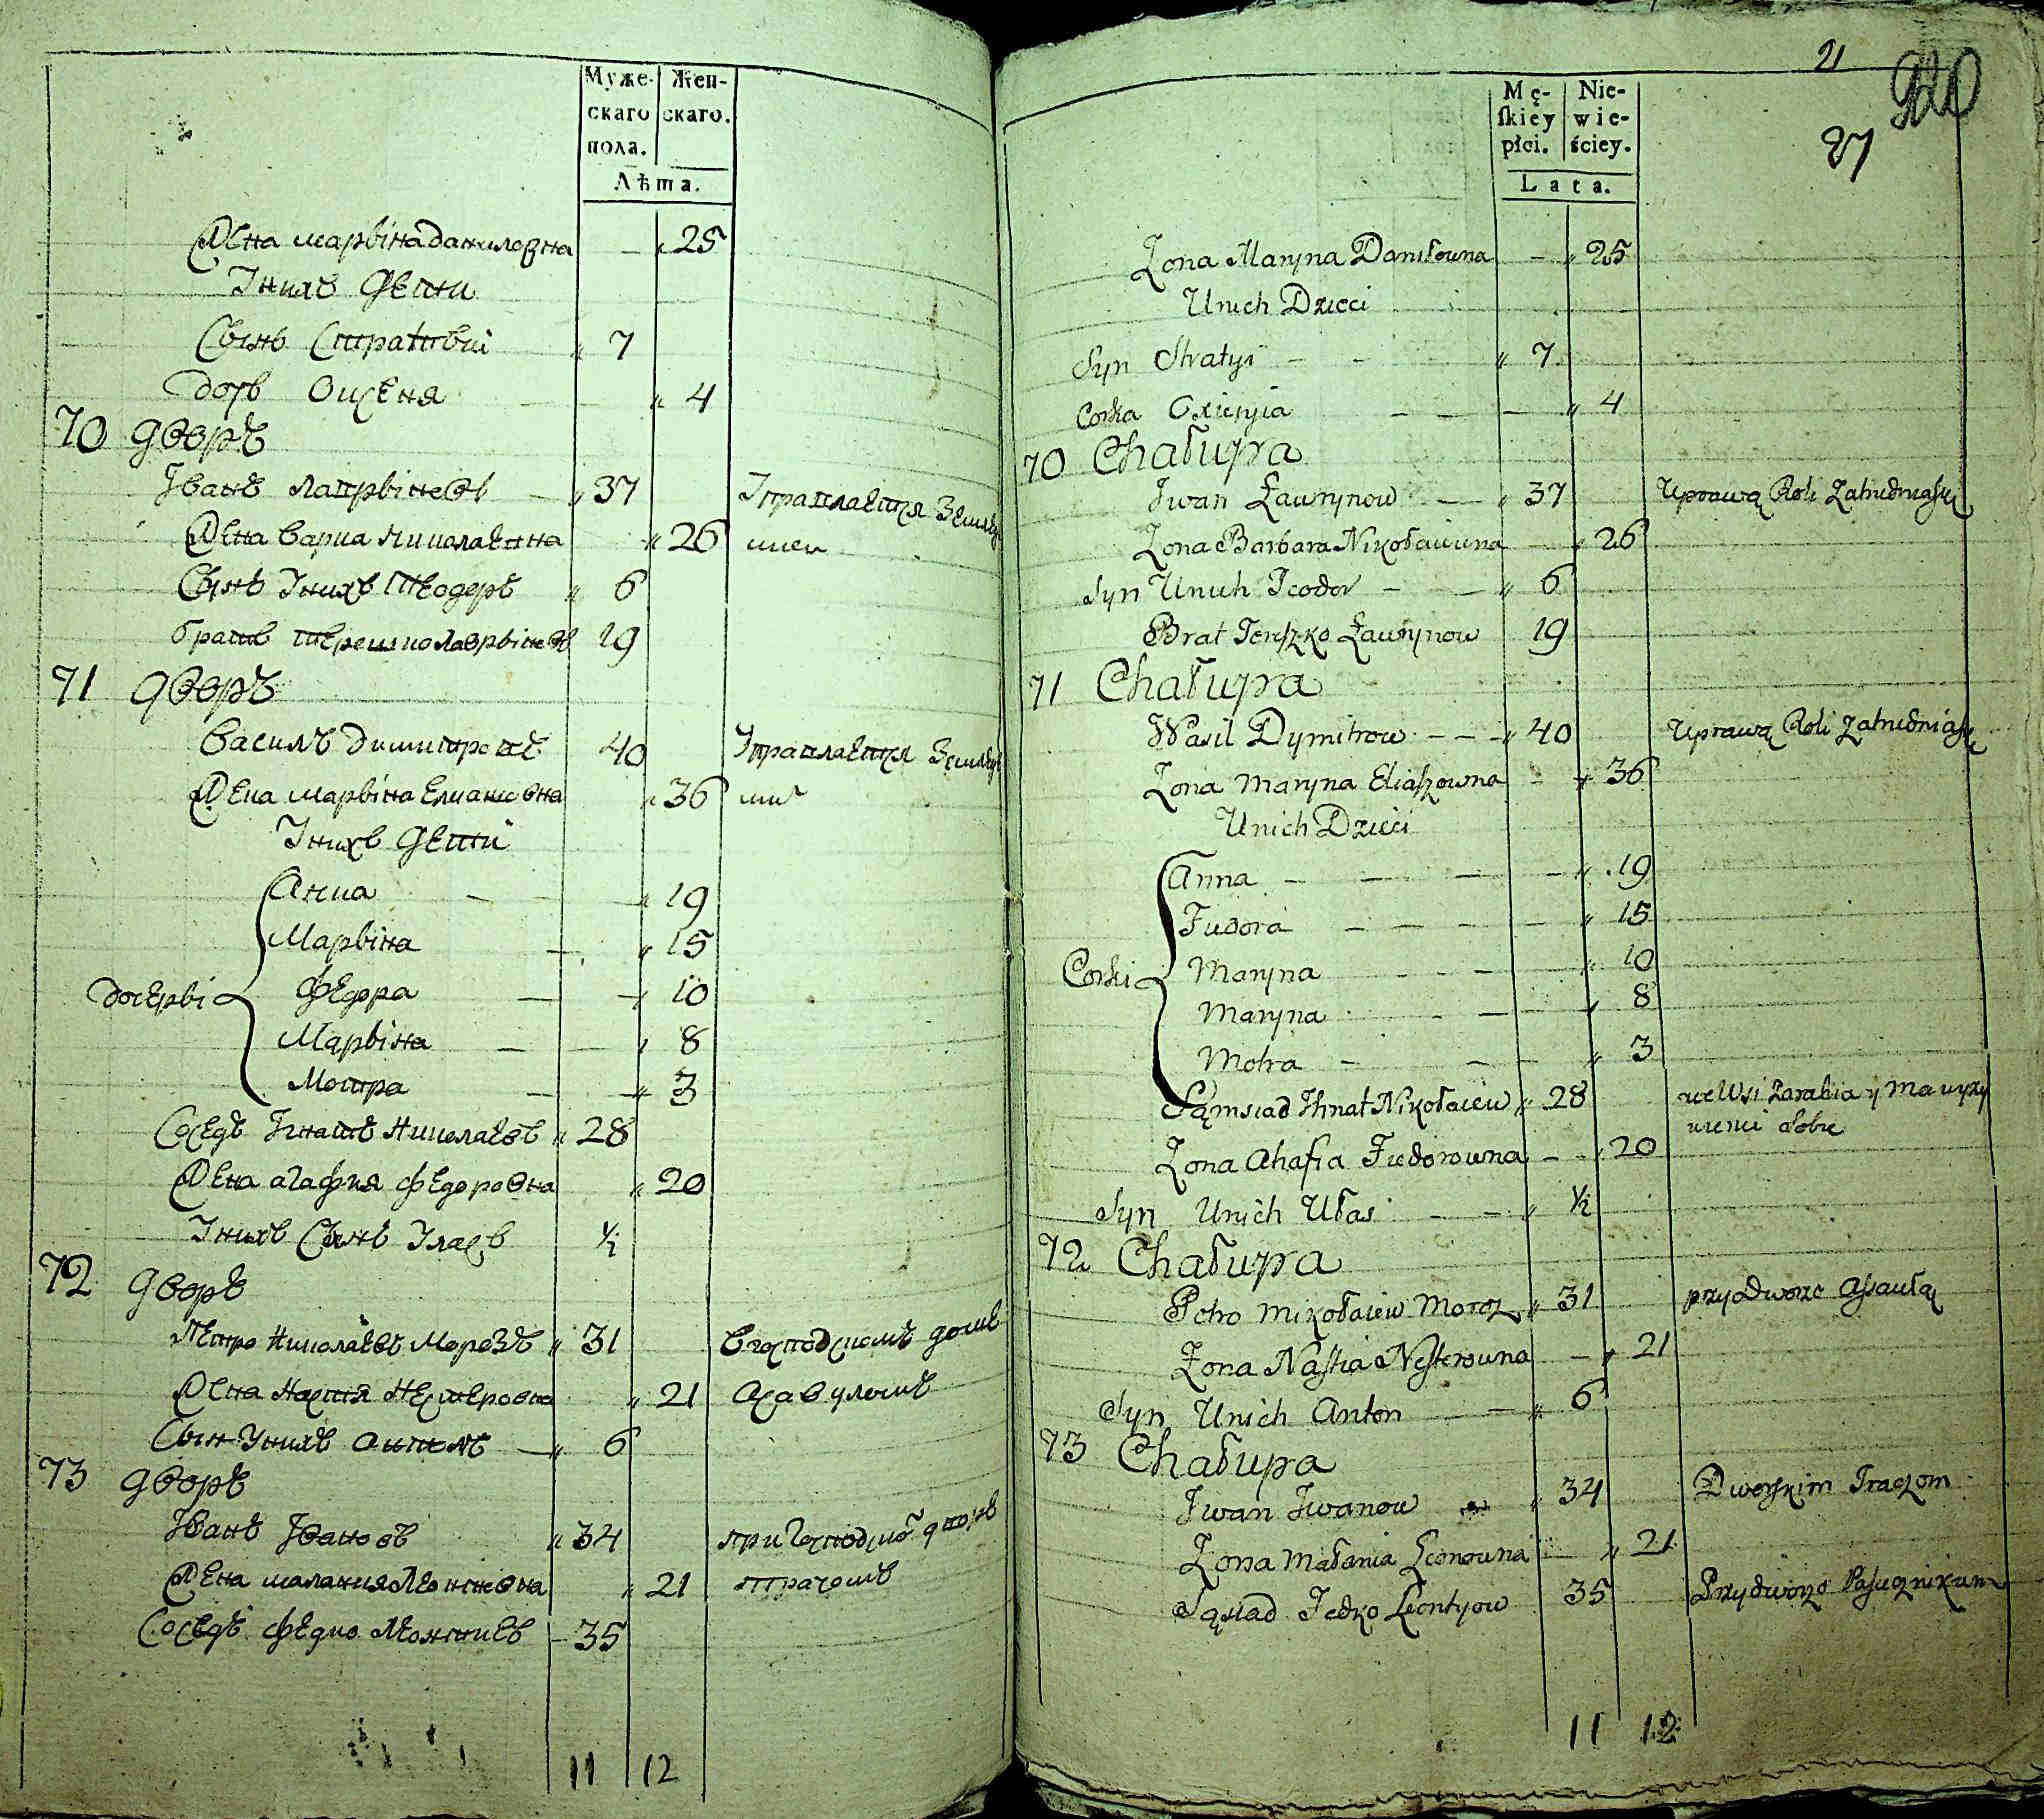 Муже-
скаго
пола.
Жен-
скаго.
Лѣта.
Жена Марына Даниловна 25
У нихъ Дети
Сынъ Стратый 7
дочь Оксеня 4
70 дворъ
Иванъ Лаврыновъ 37
Жена Варка Николаевна 26
Сынъ У нихъ Теодоръ 6
братъ терешко Лаврыновъ 19
71 дворъ
Василь Димитровъ 40
Жена Марына Елиашовна 36
У нихъ Дети
Анна 19
Марына 15
дочеры Федора 10
Марына 8
Мотра 3
Соседъ Игнатъ Николаевъ 28
Жена агафия Федоровна 20
У нихъ Сынъ Уласъ ½
72 дворъ
Петро Николаевъ Морозъ 31 В господскомъ доме
Жена Настя Нестеровна 21 Асавуломъ
Сынъ У нихъ Антонъ 6
73 дворъ
Иванъ Ивановъ 34 при Господско
Жена малания Леоновна 21 ткачомъ
Соседъ Федко Леонтиевъ 35
11 12
21
27
Mę-
ſkiey
płci.
Nie-
wie-
ściey.
Lata.
Zona Maryna Daniłowna 25
Unich Dzieci
Syn Stratyi 7
Corka Oxienia 4
70 Chałupa
Iwan Ławrynow 37 Uprawą Roli Zatrudniaſię
Zona Barbara Nikołaiewna 26
Syn Unich Teodor 6
Brat Tereſzko Ławrynow 19
71 Chałupa
Wasil Dymitrow 40 Uprawą Roli Zatrudniaſię
Zona Maryna Eliaſzowna 36
Unich Dzieci
Anna 19
Fiedora 15
Corki Maryna 10
Maryna 8
Motra 3
Sąmsiad Ihnat Nikołaiew 28 we Wsi Zarabia y Ma wyży
Zona Ahafia Fiedorowna 20
Syn Unich Ułas ½
72 Chałupa
Petro Mikołaiew Moroz 31 przy Dworze Aſsaułą
Zona Naſtia Neſterowna 21
Syn Unich Anton 6
73 Chałupa
Iwan Iwanow 34 Dworſkim Tkaczom
Zona Małania Leonowna 21
Sąsiad Fedko Leontyow 35 Przy dworze Paſiecznikum
11 12